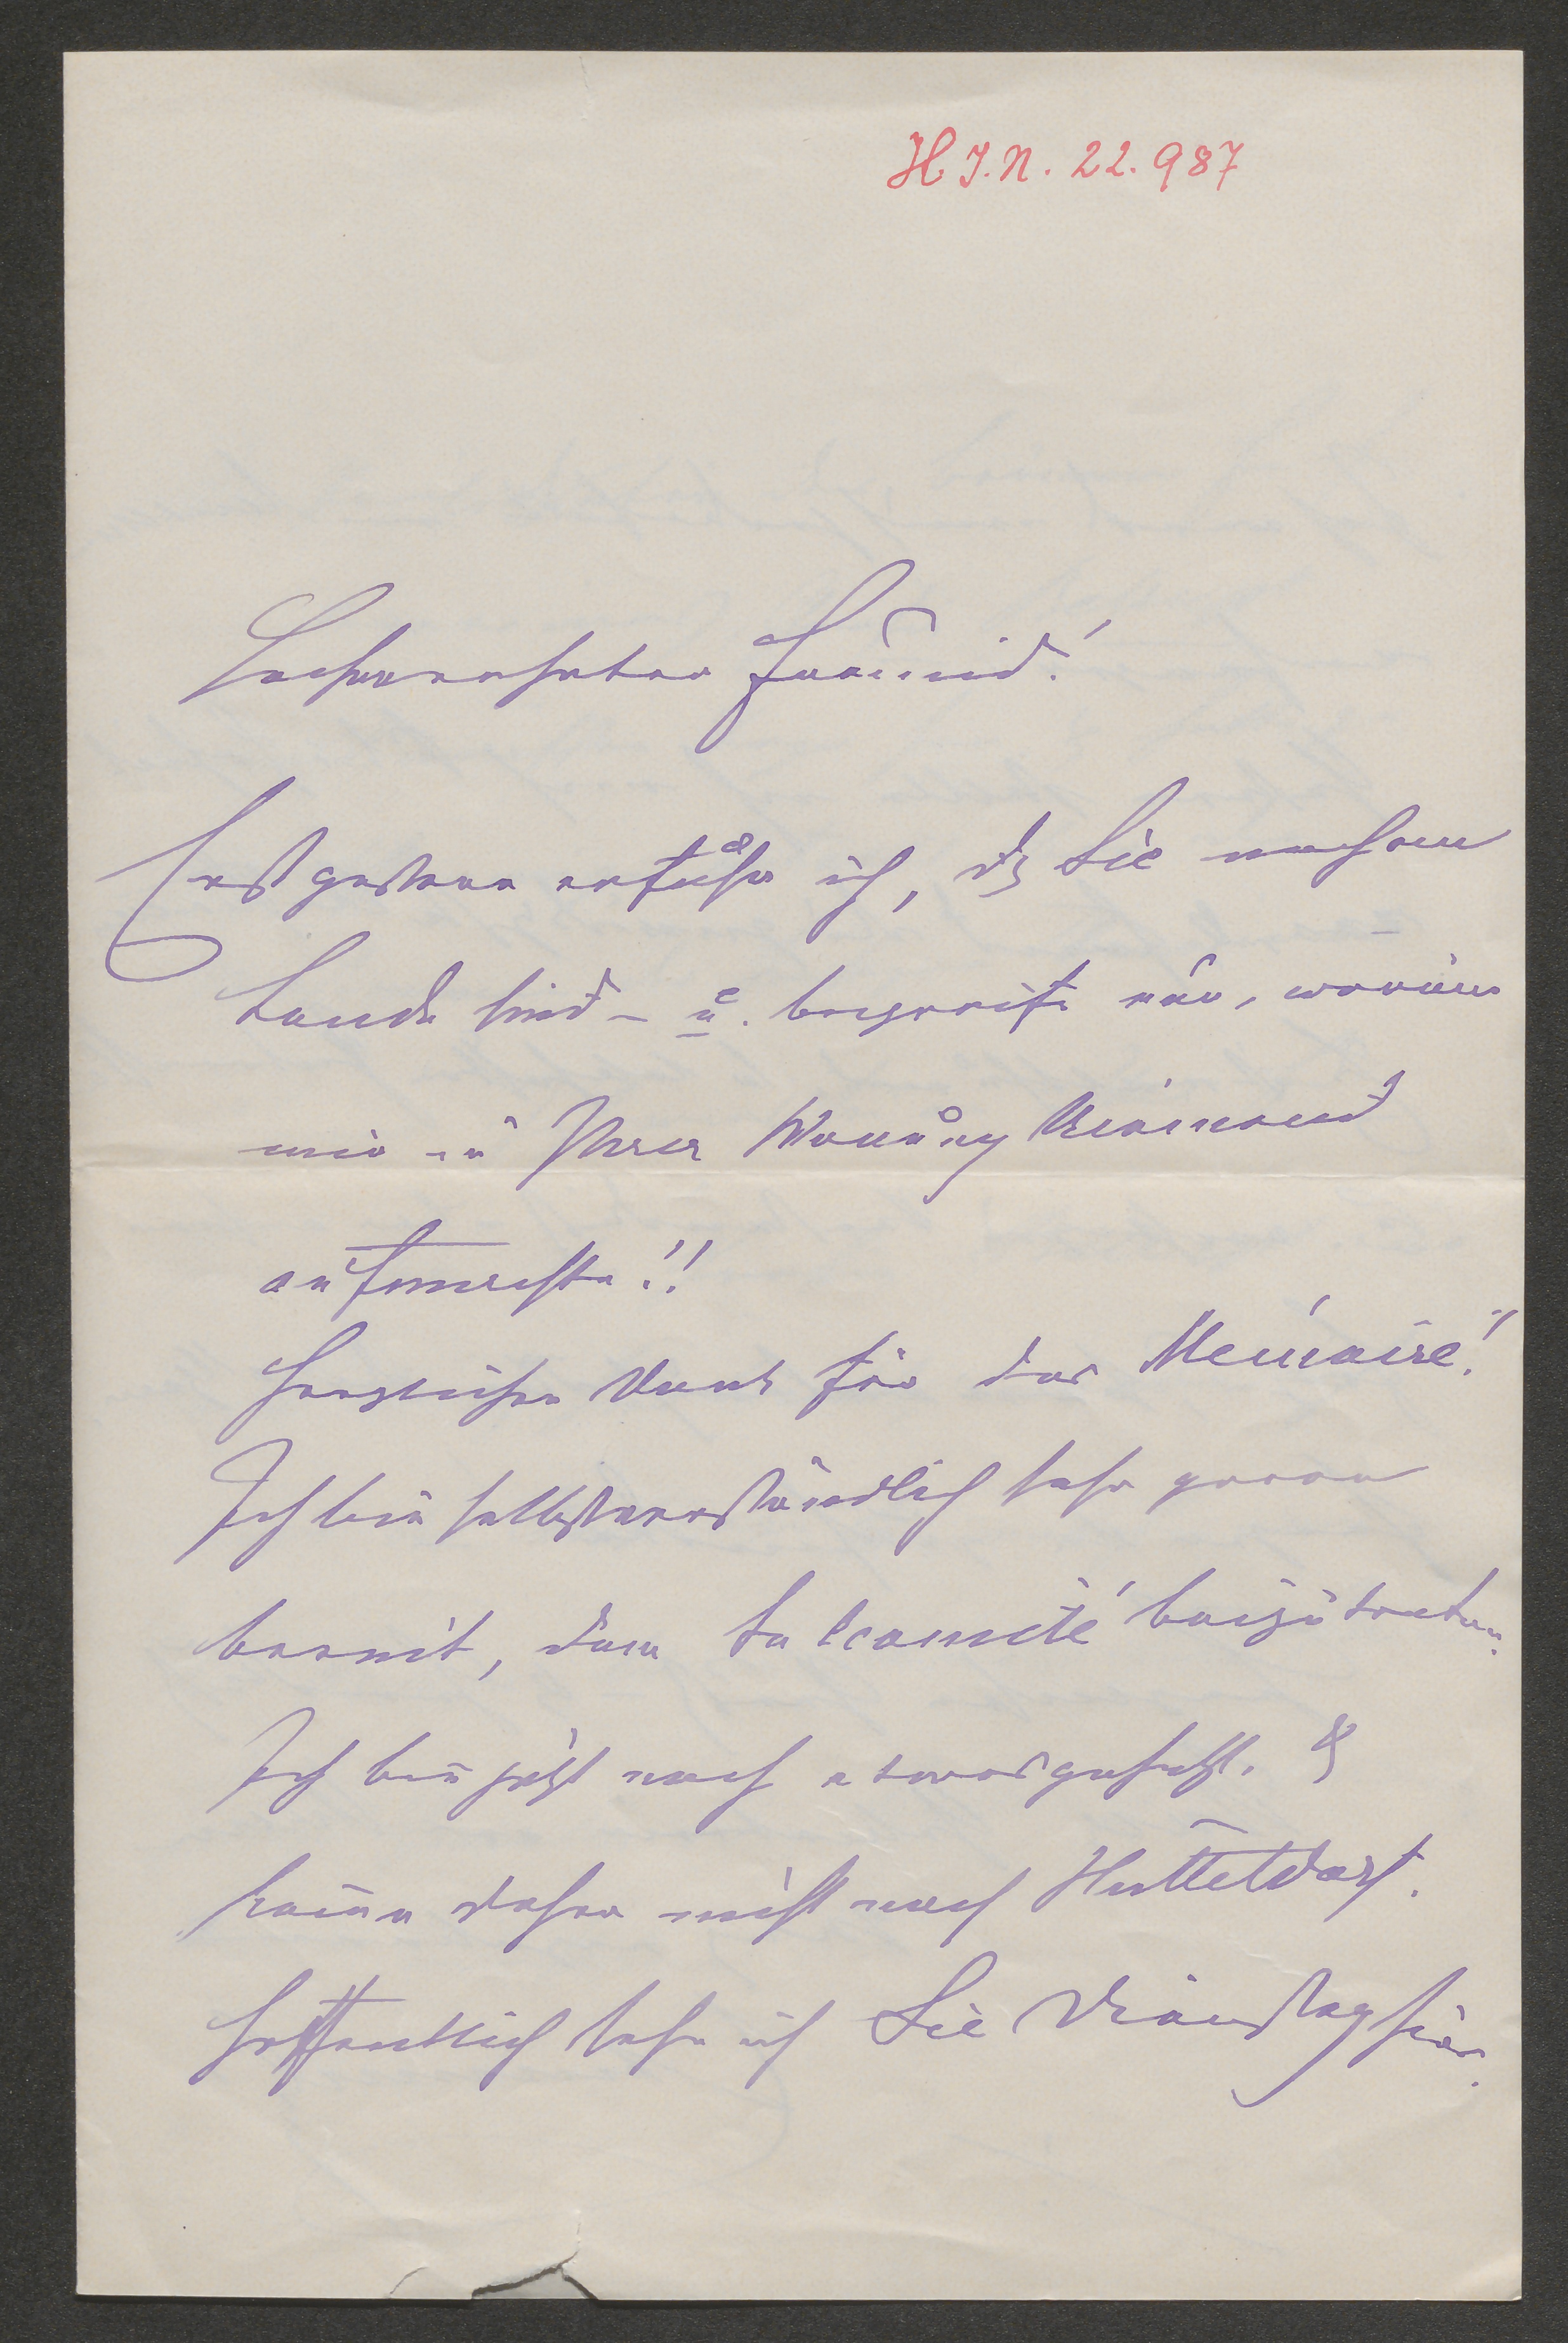 H J. N. 22.987
Hochverehrter Freund!
Erst gestern erfuhr ich, dß Sie auf dem
Lande sind – u. begreife nun, warum
mir in Ihrer Wohnung Niemand
aufmachte!!
Herzlichen Dank für das Memoire!
Ich bin selbstverständlich sehr gerne
bereit, dem Comité beizutreten.
Ich bin jetzt noch etwas gehetzt. &
kann daher nicht nach Hütteldorf.
Hoffentlich sehe ich Sie Dienstag hier.